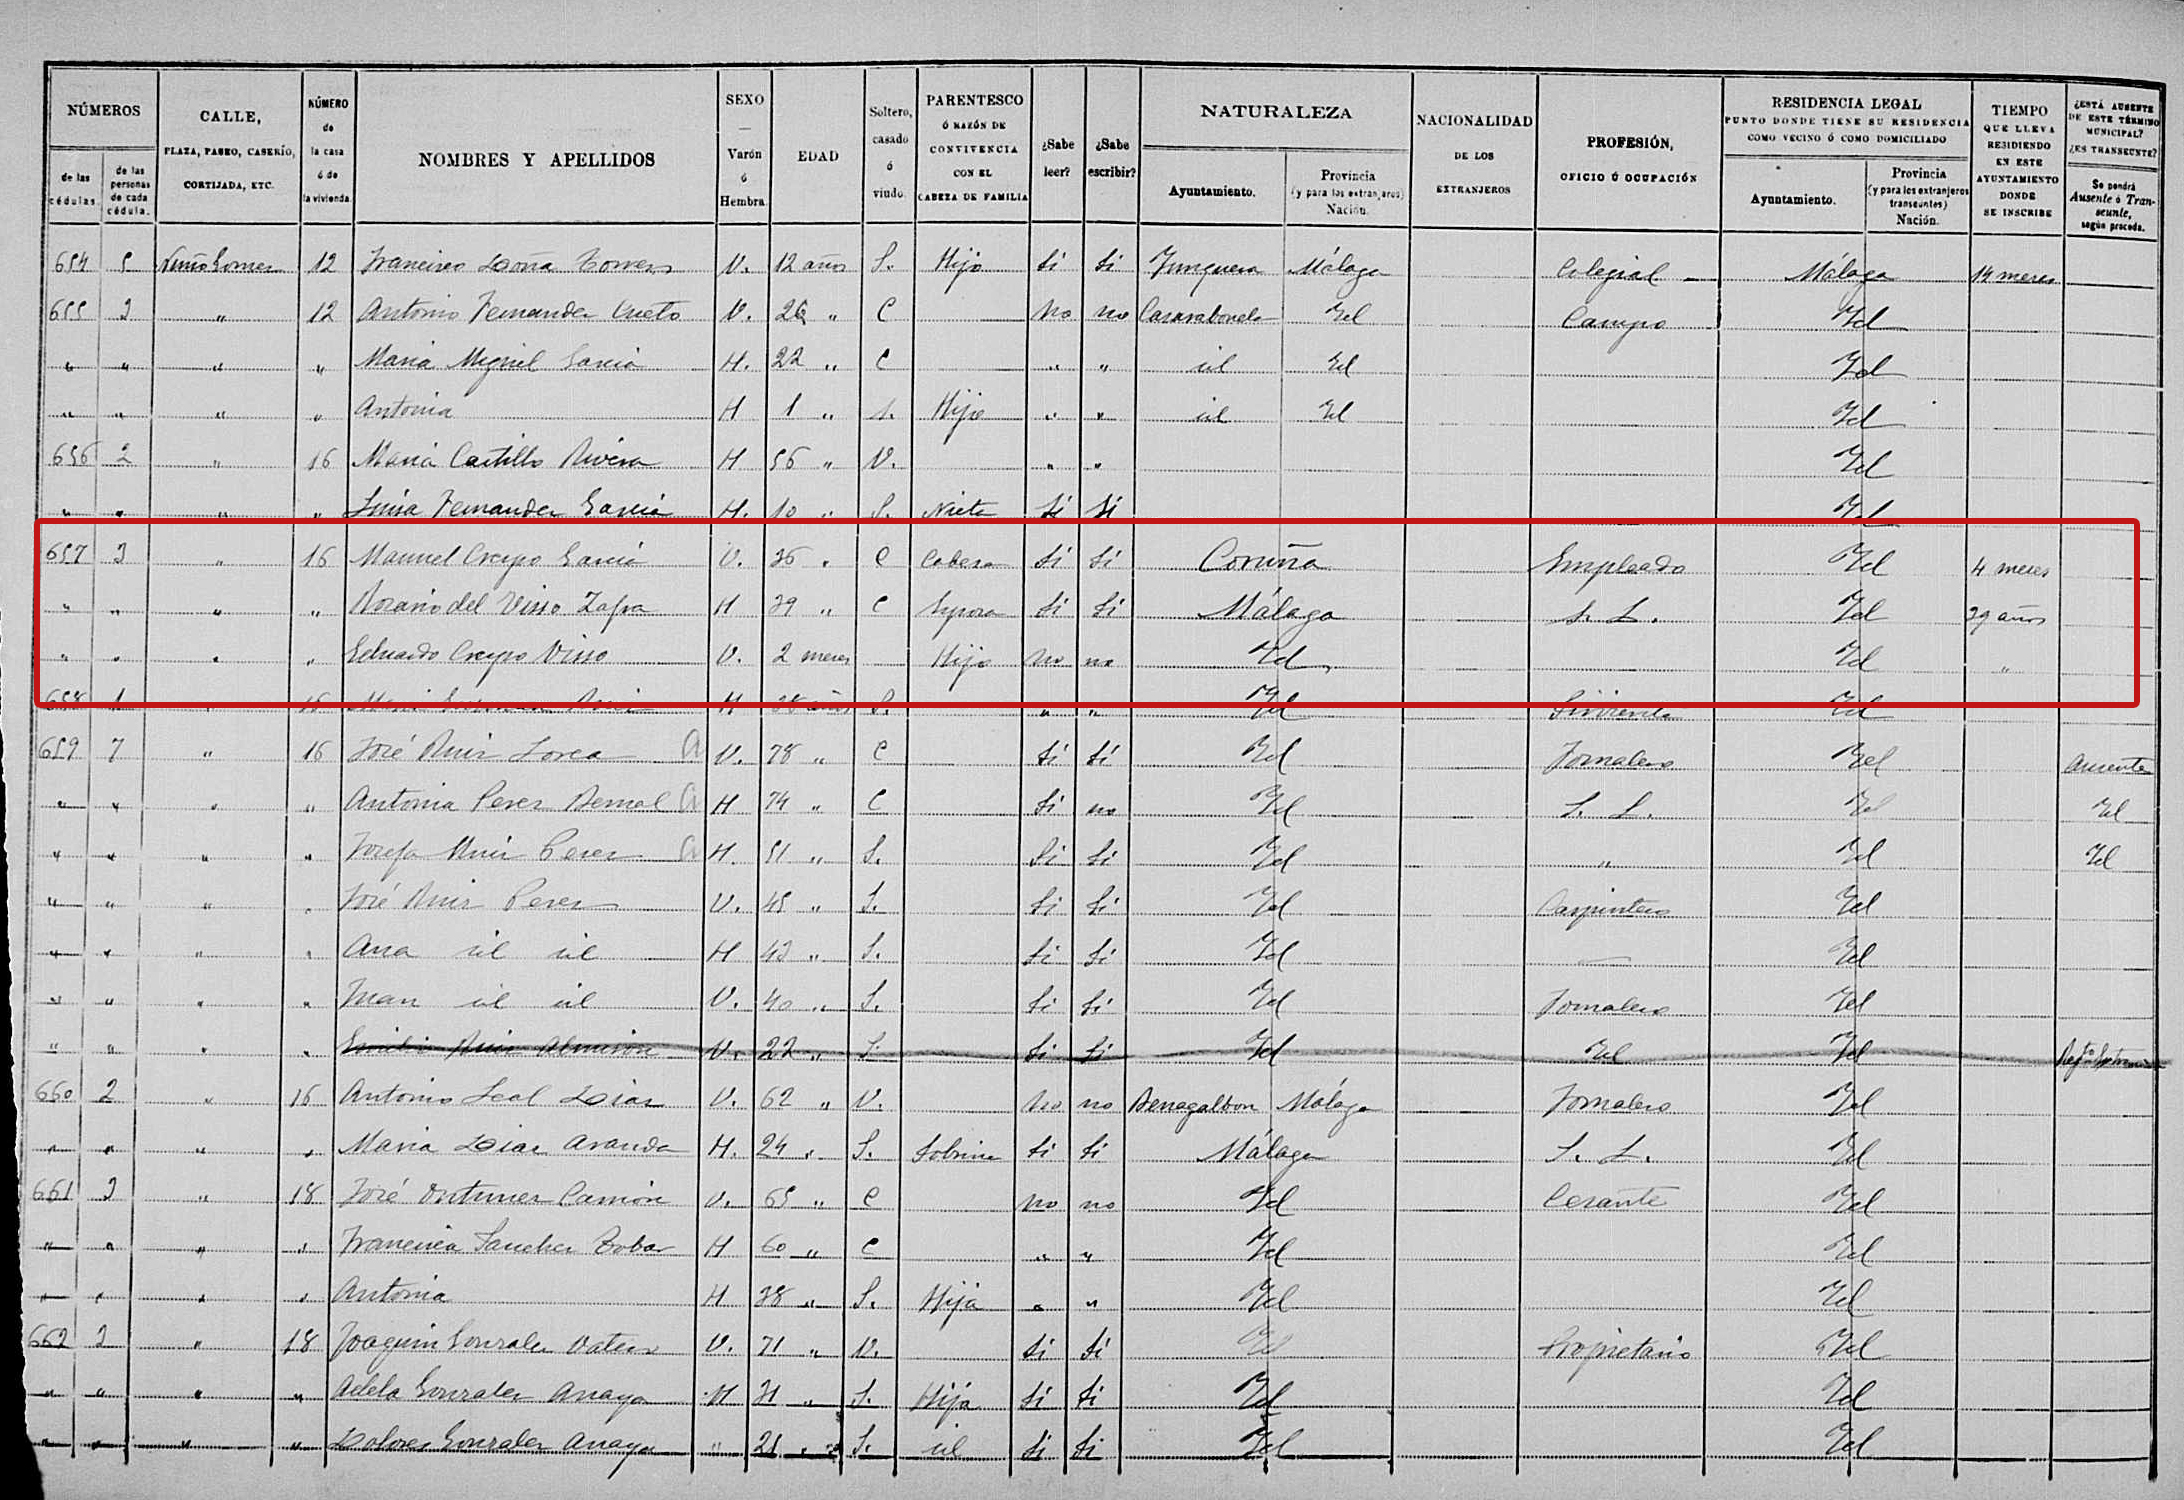 NÚMEROS
de las cédulas.
de las personas de cada cédula.
CALLE,
PLAZA, PASEO, CASERÍO,
CORTIJADA, ETC.
NÚMERO de la casa ó de la vivienda.
NOMBRES Y APELLIDOS
SEXO — Varón ó Hembra.
EDAD
Soltero, casado ó viudo.
PARENTESCO Ó RAZÓN DE CONVIVENCIA CON EL CABEZA DE FAMILIA
¿Sabe leer?
¿Sabe escribir?
NATURALEZA
Ayuntamiento.
Provincia (y para los extranjeros) Nación.
NACIONALIDAD DE LOS EXTRANJEROS
PROFESIÓN,
OFICIO Ó OCUPACIÓN
RESIDENCIA LEGAL
PUNTO DONDE TIENE SU RESIDENCIA
COMO VECINO Ó COMO DOMICILIADO
Ayuntamiento.
Provincia (y para los extranjeros transeuntes) Nación.
TIEMPO QUE LLEVA RESIDIENDO EN ESTE AYUNTAMIENTO DONDE SE INSCRIBE
¿ESTÁ AUSENTE DE ESTE TÉRMINO MUNICIPAL? ¿ES TRANSEUNTE?
Se pondrá Ausente ó Transeunte, según proceda.
654 5 12 Francisco Doña V. 12 años S. Hijo Si Si Yunquera Málaga Colegial Málaga 14 meses
655 3 " 12 Antonio Fernandez V. 26 " C no no Casarabonela Yd Campo Yd
" " " " Maria Miguel Garcia H. 22 " C " " id Yd Yd
" " " " Antonia H 1 " S. Hija " " id Yd Yd
656 2 " 16 Maria Castillo Rivera H 56 " V. " " Yd
" " " " Fernandez Garcia H. 10 " S. Nieta Si Si Yd
657 3 " 16 Manuel Crespo Garcia V. 36 " C Cabeza Si Si Coruña Empleado Yd 4 meses
" " " " Rosario del Viso Zafra H 39 " C Esposa Si Si Málaga S. L. Yd 39 años
" " " " Eduardo Crespo Viso V. 2 meses Hijo no no Yd Yd "
658 1 " 16 Maria H 38 años S. " " Yd Sirvienta Yd
659 7 " 16 José Ruiz Lorca A V. 78 " C Si Si Yd Jornalero Yd Ausente
" " " " Antonia Perez Bernal A H 74 " C Si no Yd S. L. Yd Yd
" " " " Josefa Ruiz Perez A H. 51 " S. Si Si Yd " Yd Yd
" " " " José Ruiz Perez V. 45 " S. Si Si Yd Carpintero Yd
" " " " Ana id id H 43 " S. Si Si Yd Yd
" " " " Juan id id V. 40 " S. Si Si Yd Jornalero Yd
" " " " Emilio Ruiz Almiron V. 22 " S. Si Si Yd Yd Yd
660 2 " 16 Antonio Leal Diaz V. 62 " V. no no Benagalbon Málaga Jornalero Yd
" " " " Maria Diaz Aranda H. 24 " S. Sobrina Si Si Málaga S. L. Yd
661 3 " 18 José V. 65 " C no no Yd Cesante Yd
" " " " Francisca Sanchez H 60 " C " " Yd Yd
" " " " Antonia H 38 " S. Hija " " Yd Yd
662 3 " 18 Joaquin Gonzalez V. 71 " V. Si Si Yd Propietario Yd
" " " " Adela Gonzalez Anaya H 31 " S. Hija Si Si Yd Yd
" " " " Dolores Gonzalez Anaya " 21 " S. id Si Si Yd Yd